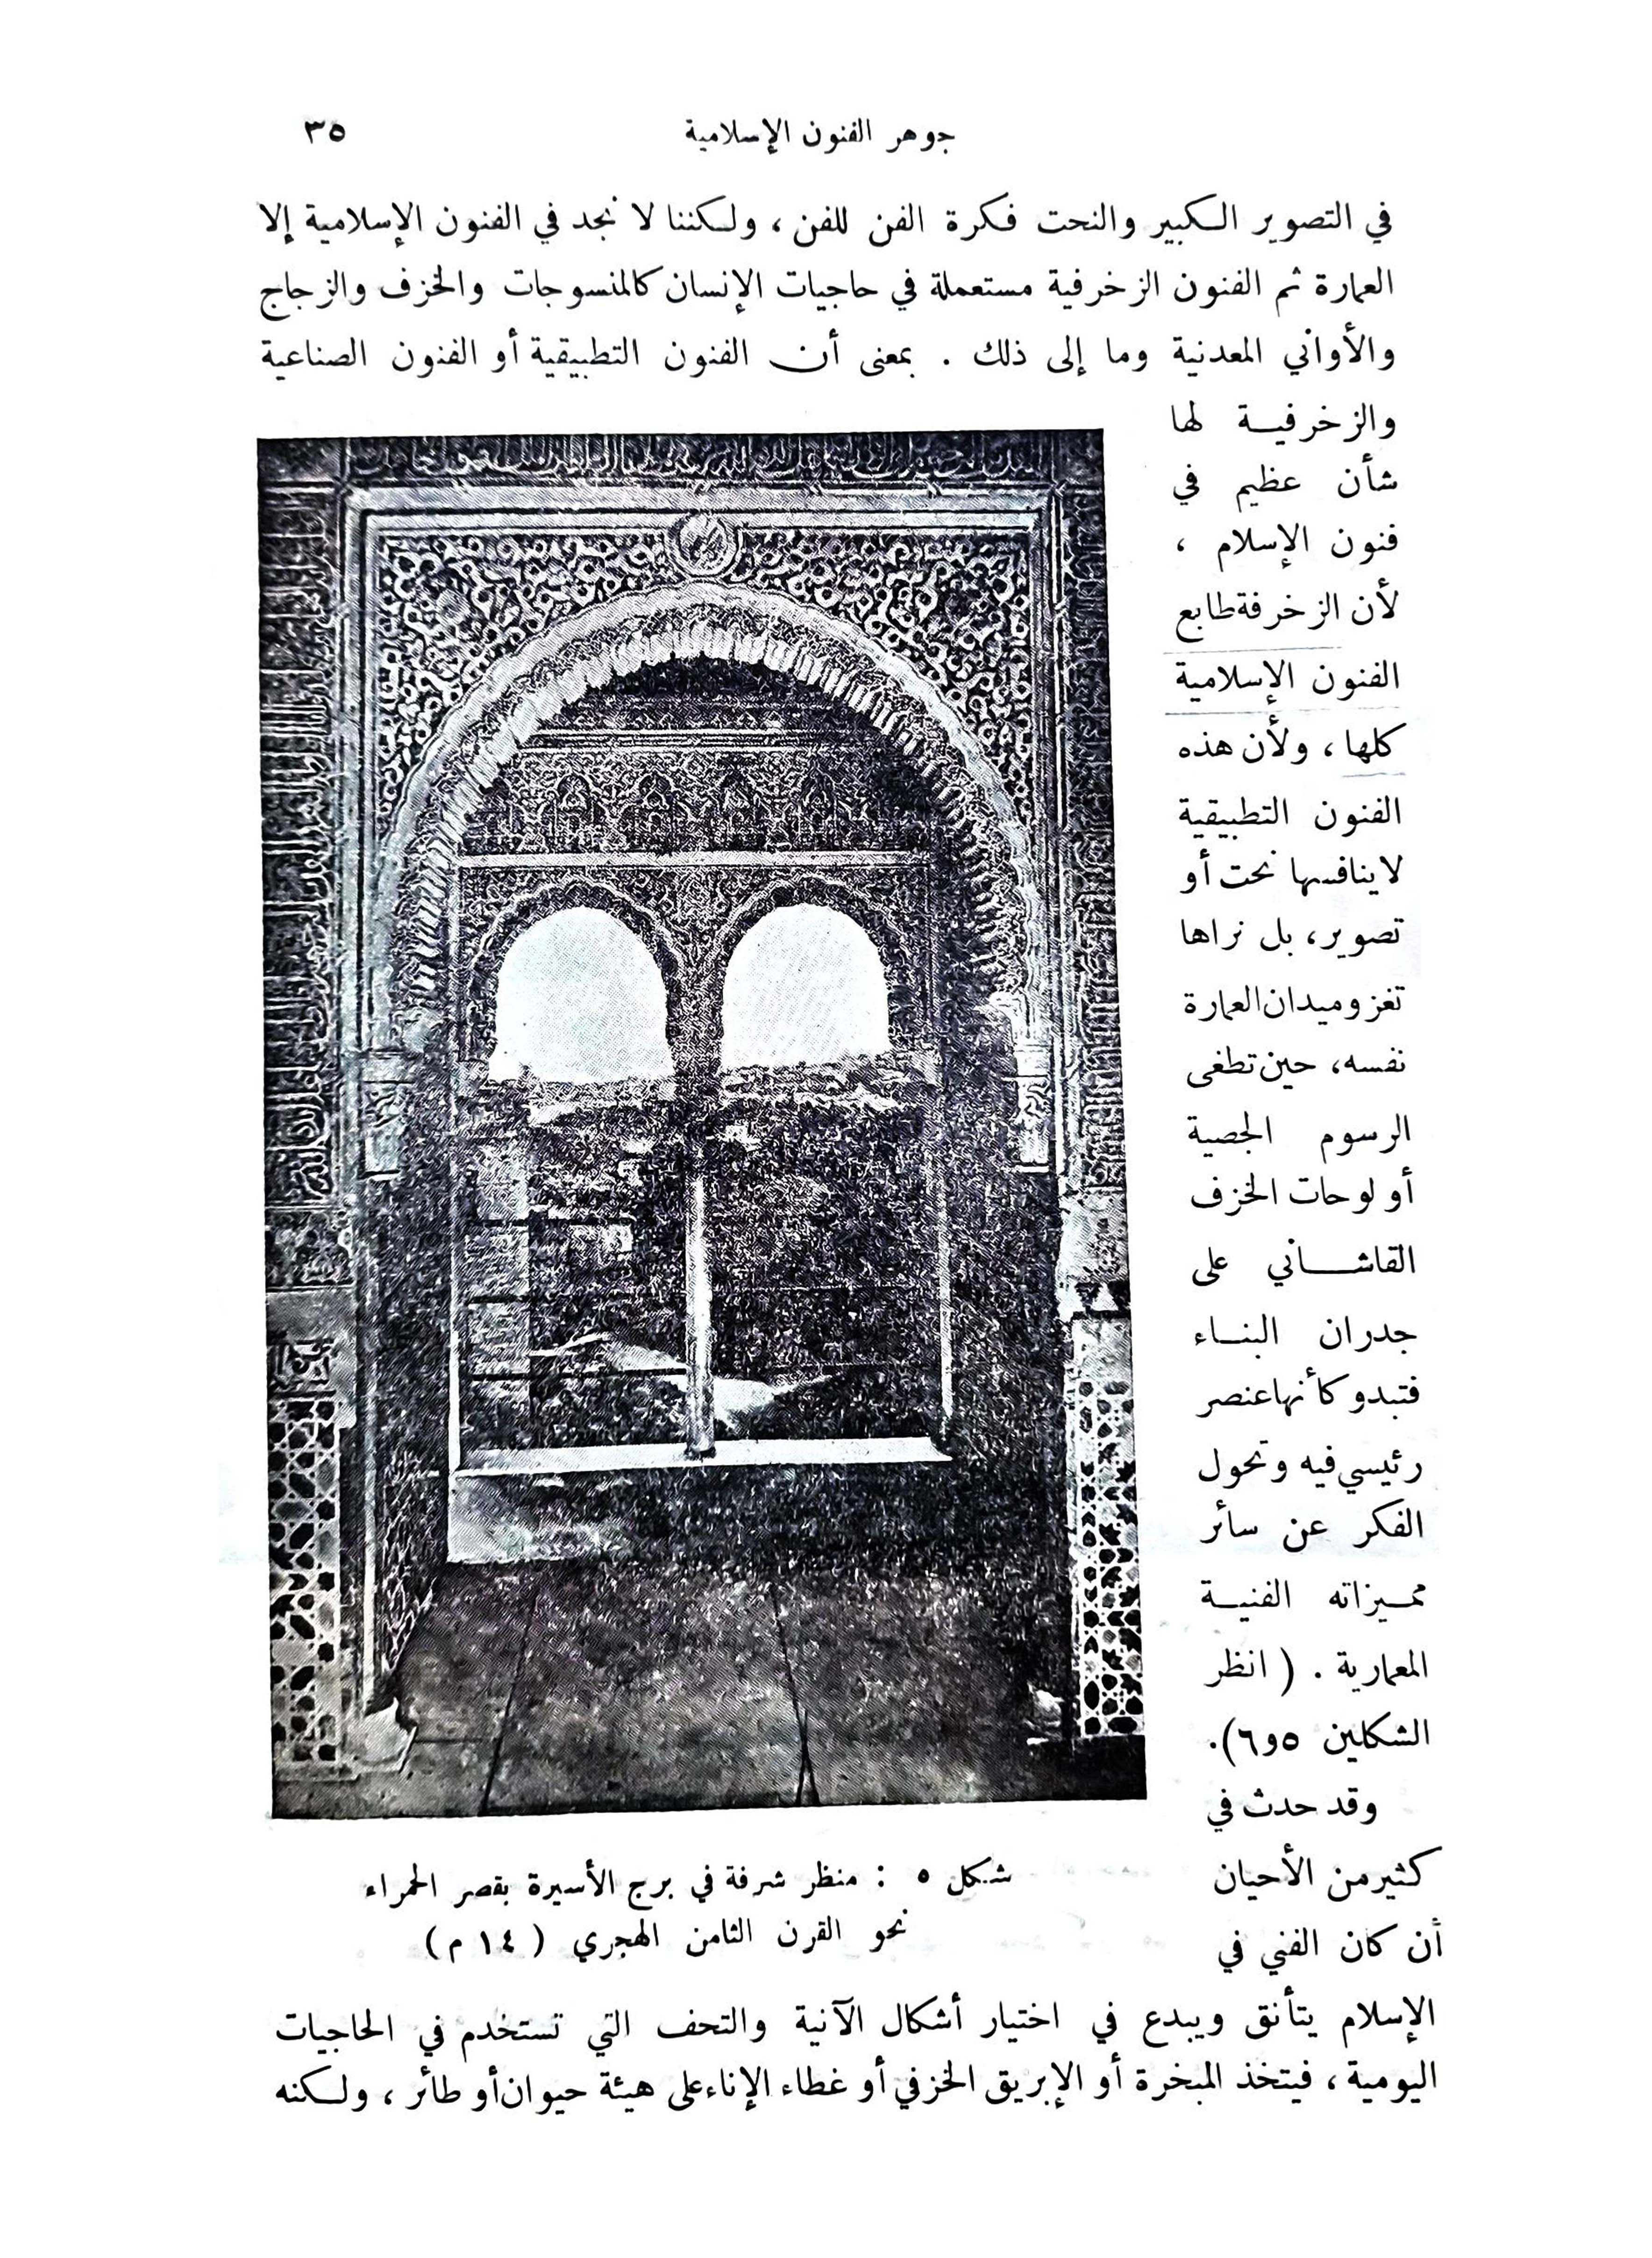 جوهر الفنون الإسلامية ٣٥
في التصوير الكبير والنحت فكرة الفن للفن ، ولكننا لا نجد في الفنون الإسلامية إلا
العمارة ثم الفنون الزخرفية مستعملة في حاجيات الإنسان كالمنسوجات والخزف والزجاج
والأواني المعدنية وما إلى ذلك . بمعنى أن الفنون التطبيقية أو الفنون الصناعية
والزخرفية لها
شأن عظيم في
فنون الإسلام ،
لأن الزخرفة طابع
الفنون الإسلامية
كلها ، ولأن هذه
الفنون التطبيقية
لا ينافسها نحت أو
تصوير، بل نراها
تغزو ميدان العمارة
نفسه، حين تطغى
الرسوم الجصية
أو لوحات الخزف
القاشاني على
جدران البناء
فتبدو كأنها عنصر
رئيسي فيه وتحول
الفكر عن سائر
مميزاته الفنية
المعمارية . ( انظر
الشكلين ٥ و٦).
وقد حدث في
كثير من الأحيان
أن كان الفني في
شكل ٥ : منظر شرفة في برج الأسيرة بقصر الحمراء
نحو القرن الثامن الهجري ( ١٤ م )
الإسلام يتأنق ويبدع في اختيار أشكال الآنية والتحف التي تستخدم في الحاجيات
اليومية ، فيتخذ المبخرة أو الإبريق الخزفي أو غطاء الإناء على هيئة حيوان أو طائر ، ولكنه